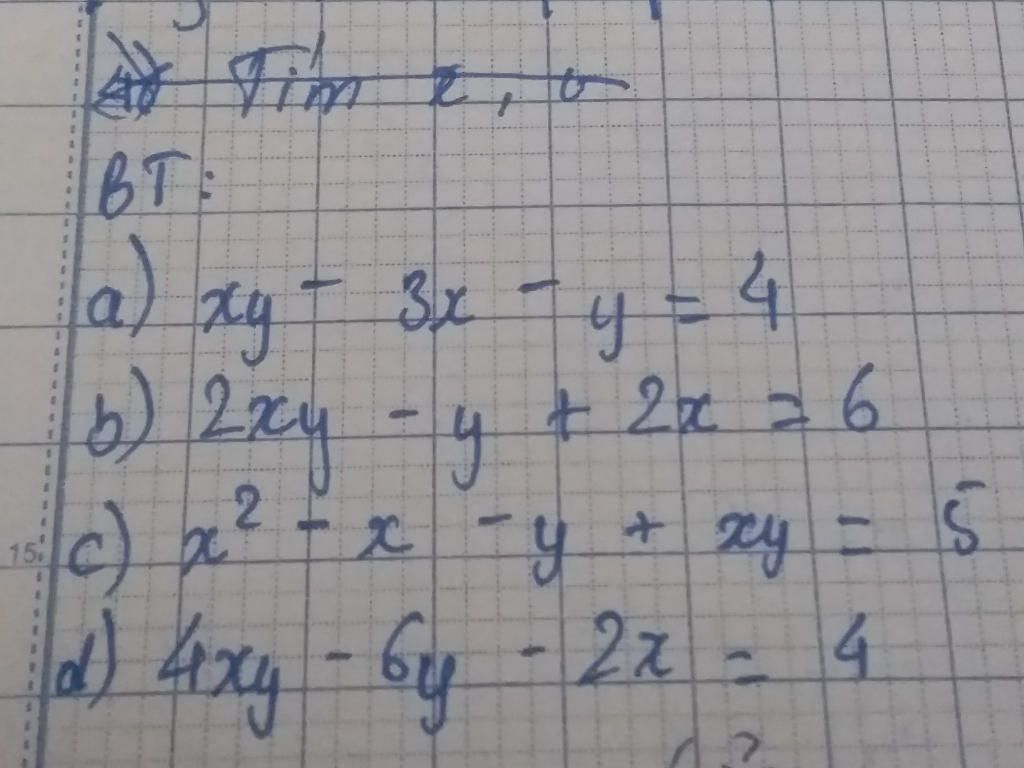 Tìm x,
BT:
a) xy - 3x - y = 4
b) 2xy - y + 2x = 6
15
c) x² - x - y + xy = 5
d) 4xy - 6y - 2x = 4